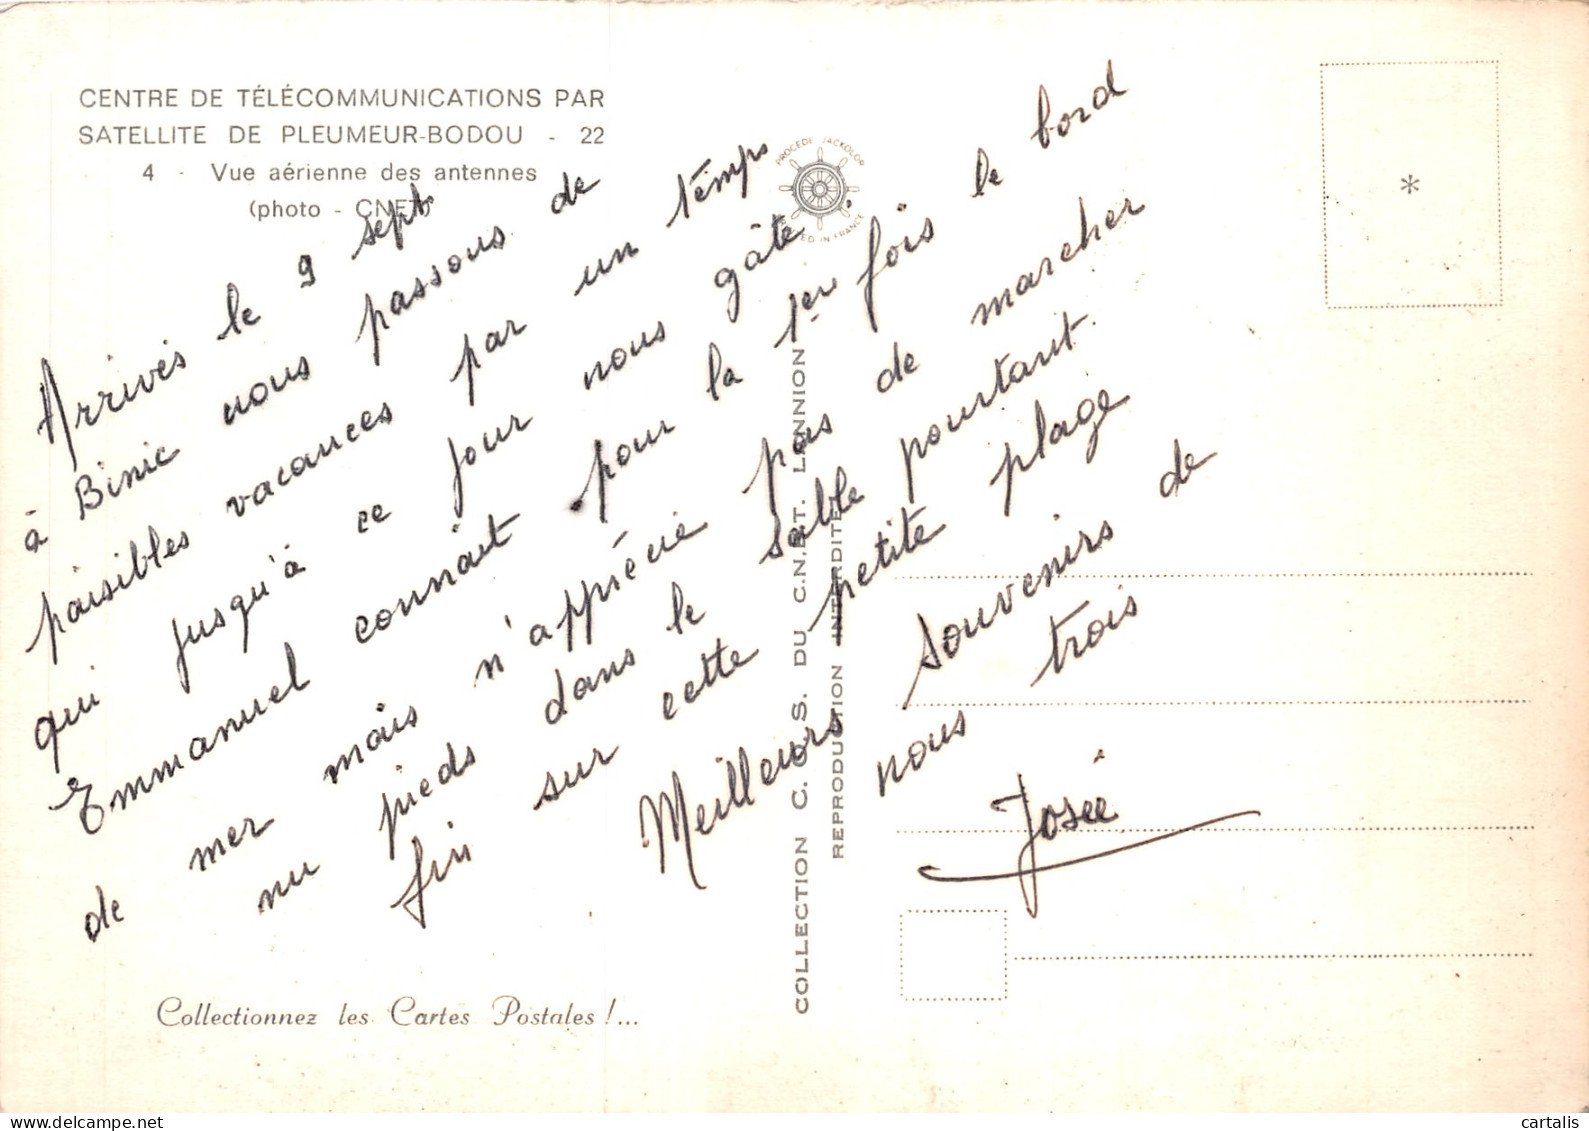 CENTRE DE TÉLÉCOMMUNICATIONS PAR
SATELLITE DE PLEUMEUR-BODOU - 22
4 - Vue aérienne des antennes
(photo - CNET)
Arrivés le 9 sept
à Binic nous passons de
paisibles vacances par un temps
qui jusqu'à ce jour nous gâte.
Emmanuel connait pour la 1ère fois le bord
de mer mais n'apprécie pas de marcher
nu pieds dans le sable pourtant
fin sur cette petite plage
Meilleurs souvenirs de
nous trois
Josée
PROCÉDÉ JACKOLOR
IN FRANCE
COLLECTION C.O.S. DU C.N.E.T. LANNION
REPRODUCTION INTERDITE
*
Collectionnez les Cartes Postales !...
cartalis